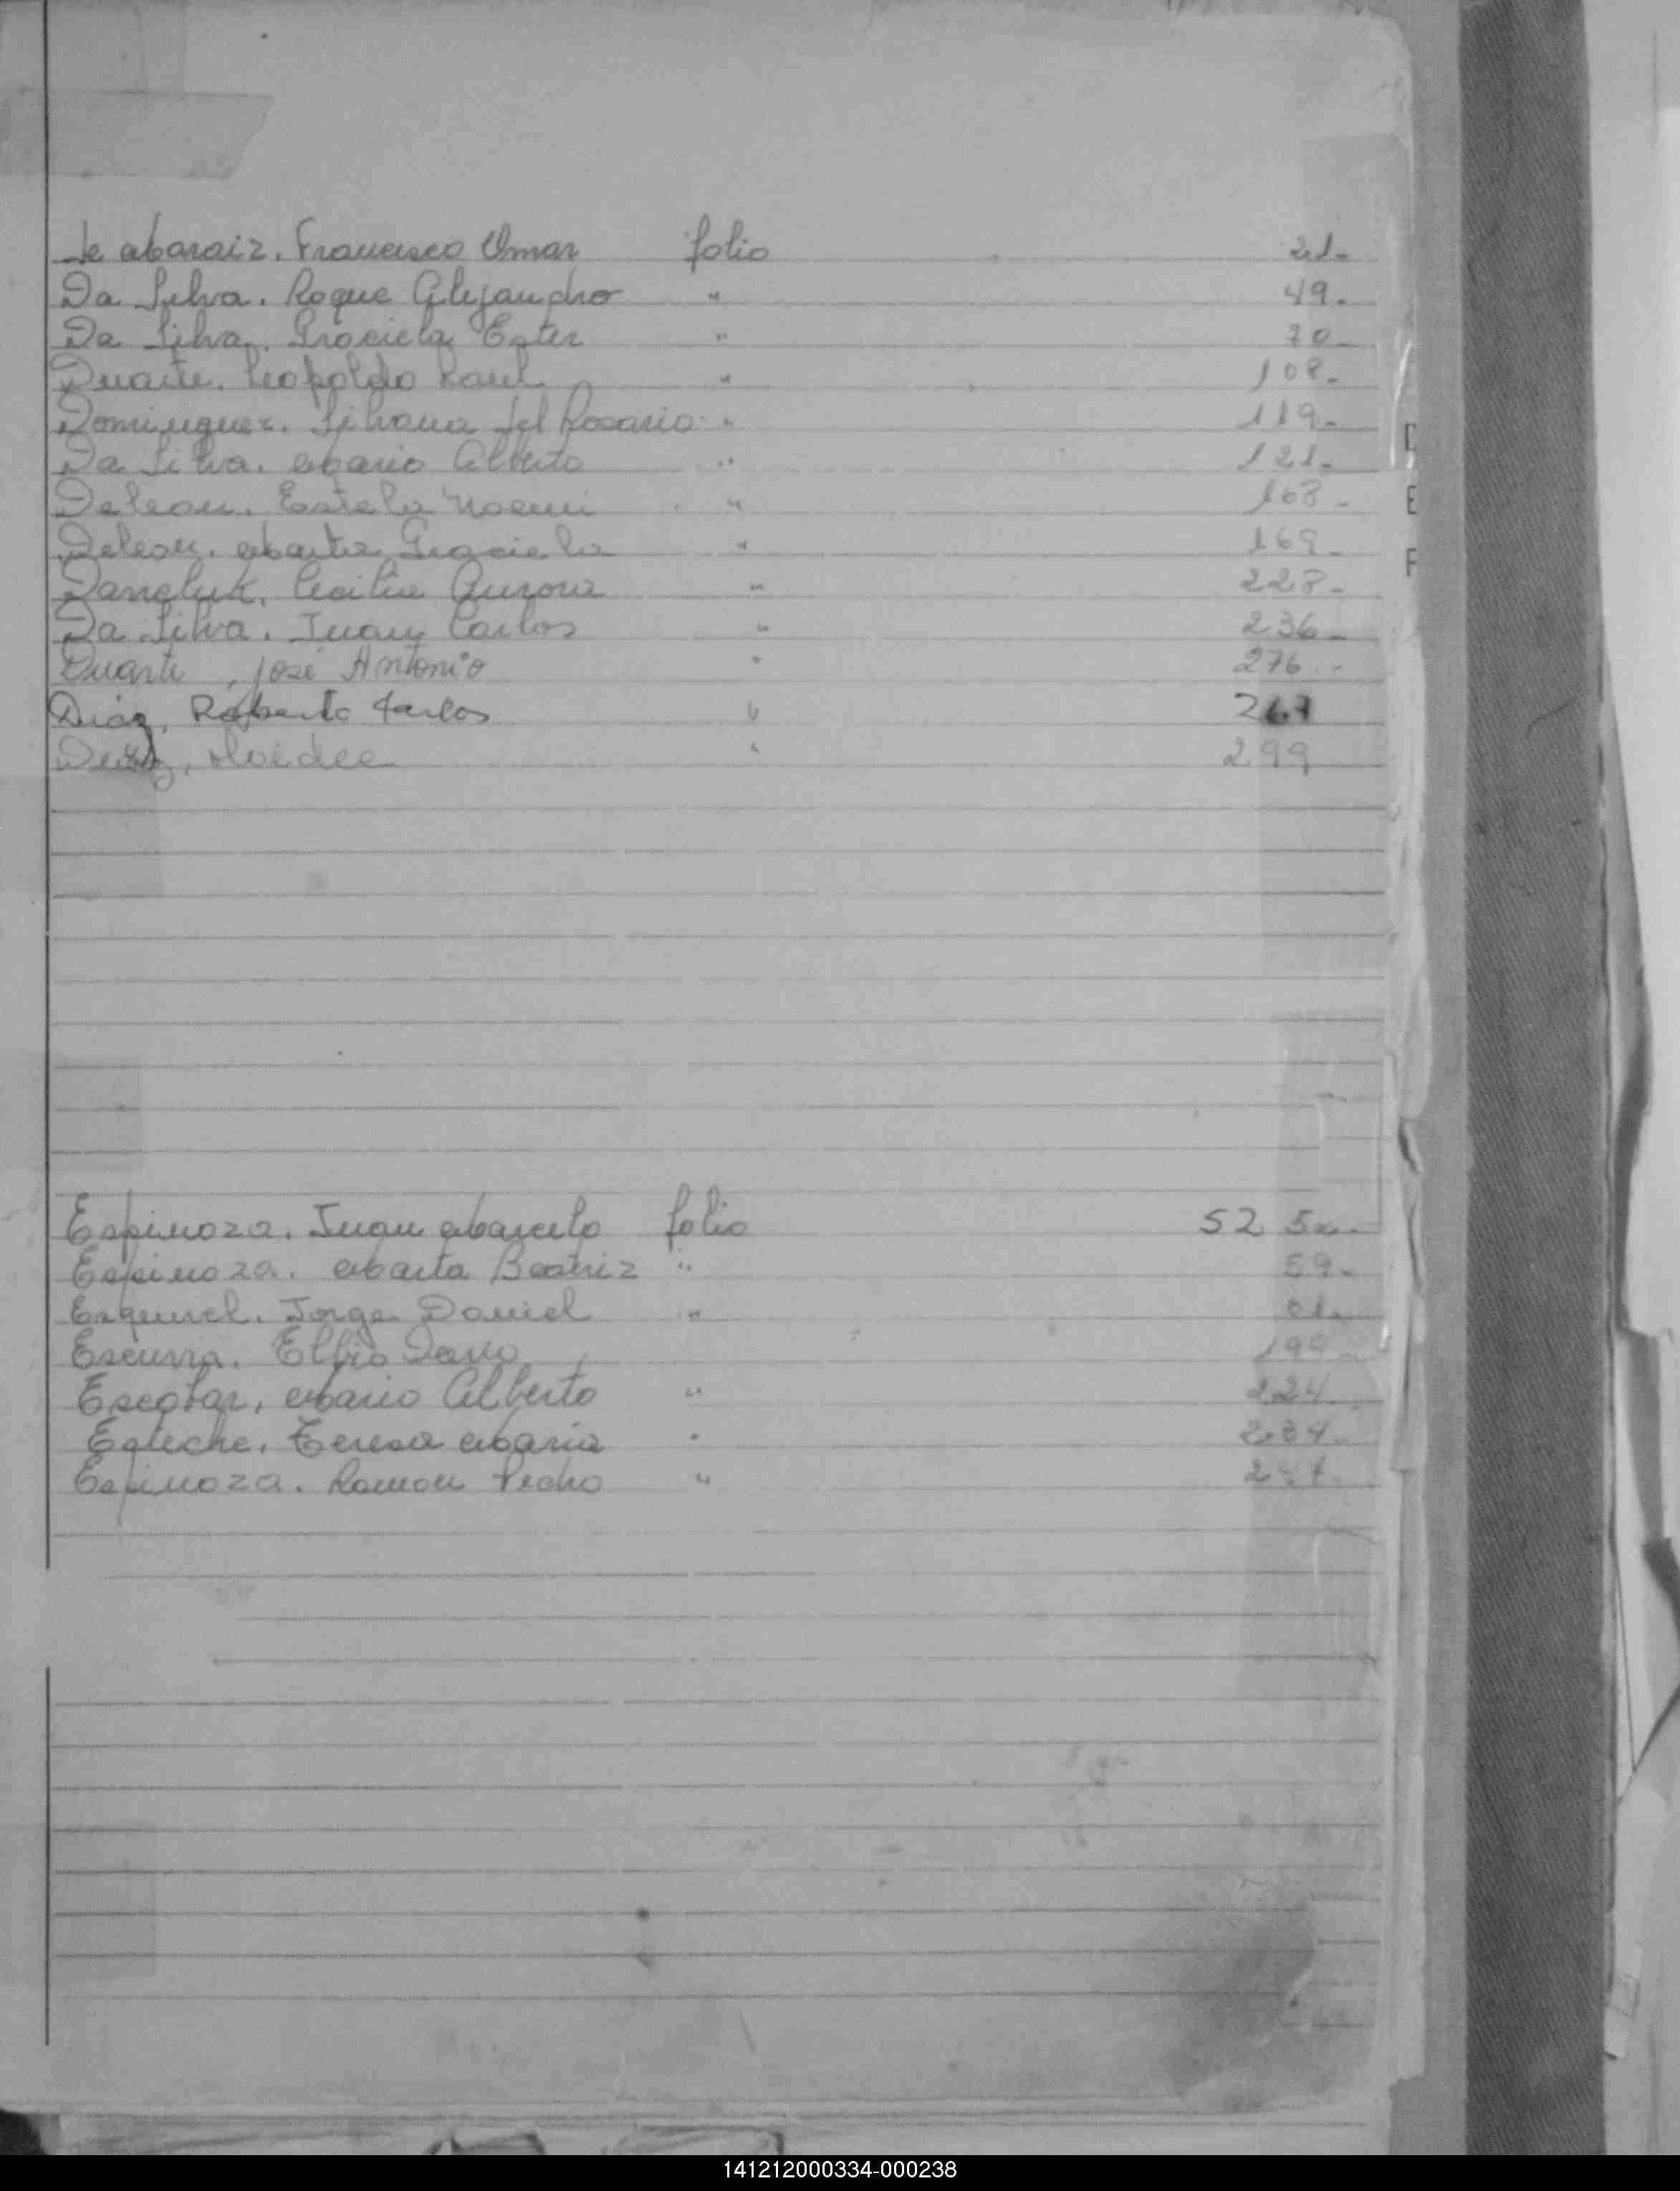 De Maraiz. Francisco Omar folio 21-
Da Silva. Roque Alejandro " 49.
Da Silva. Graciela Ester " 70-
Duarte. Leopoldo Raul " 108-
Dominguez. Silvana Del Rosario " 119-
Da Silva. Mario Alberto " 121-
De leon. Estela Noemi " 168-
De leon. Marta Graciela " 169-
Daneluk. Cecilia Aurora " 228-
Da Silva. Juan Carlos " 236-
Duarte, José Antonio " 276-
Diaz, Roberto Carlos " 267
Haidee " 299
D
E
F
Espinoza. Juan Marcelo folio 52
Espinoza. Marta Beatriz " 59-
Esquivel. Jorge Daniel "
Escurra. Elfio Dario 199-
Escobar, Mario Alberto " 224
Teresa Maria " 234-
Espinoza. Ramon Pedro "
141212000334-000238